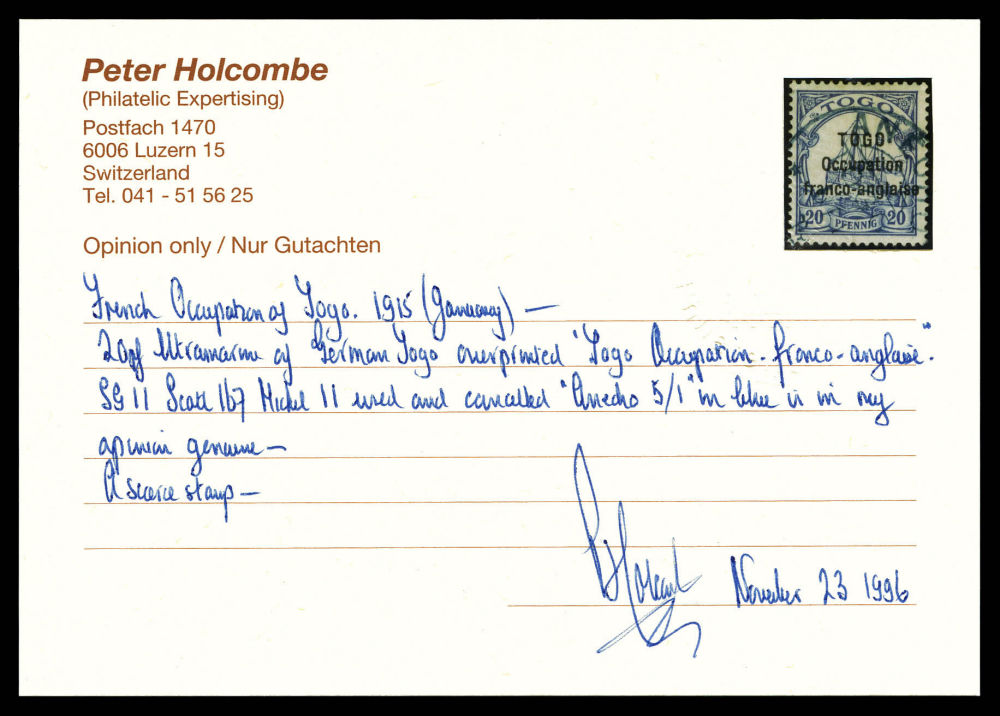 Peter Holcombe
(Philatelic Expertising)
Postfach 1470
6006 Luzern 15
Switzerland
Tel. 041 - 51 56 25
Opinion only / Nur Gutachten
TOGO
TOGO
Occupation
franco-anglaise
20 PFENNIG 20
French Occupation of Togo. 1915 (January) —
20pf Ultramarine of German Togo overprinted "Togo Occupation - franco-anglaise".
SG 11 Scott 167 Michel 11 used and cancelled "Anecho 5/1" in blue is in my
opinion genuine —
A scarce stamp —
P Holcombe
November 23 1996